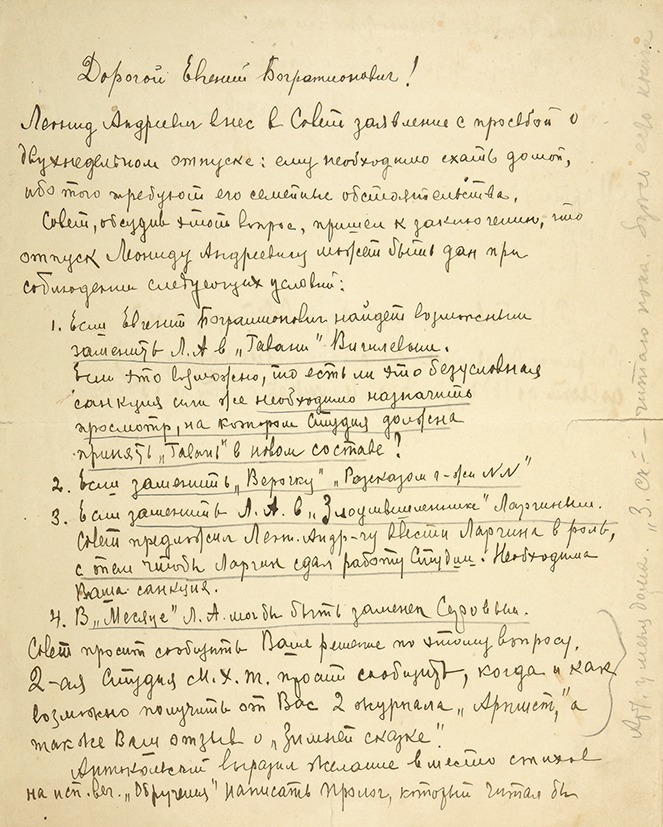 Дорогой Евгений Богратионович!
Леонид Андреевич внес в Совет заявление с просьбой о
двухнедельном отпуске: ему необходимо ехать домой,
ибо того требуют его семейные обстоятельства.
Совет, обсудив этот вопрос, пришел к заключению, что
отпуск Леониду Андреевичу может быть дан при
соблюдении следующих условий:
1. Если Евгений Богратионович найдет возможным
заменить Л.А в „Гавани" Вигилевым.
Если это возможно, то есть ли это безусловная
санкция или же необходимо назначить
просмотр, на котором Студия должна
принять „Гавань" в новом составе?
2. Если заменить „Верочку" „Рассказом г-жи NN"
3. Если заменить Л.А. в „Злоумышленнике" Ларгиным.
Совет предложил Леон. Андр-чу ввести Ларгина в роль,
с тем чтобы Ларгин сдал работу Студии. Необходима
Ваша санкция.
4. В „Месяце" Л.А. мог бы быть заменен Серовым.
Совет просит сообщить Ваше решение по этому вопросу.
2-ая Студия М.Х.Т. просит сообщить, когда и как
возможно получить от Вас 2 журнала „Артист," а
также Ваш отзыв о „Зимней сказке".
Антокольский выразил желание вместо стихов
на исп. веч. „Обручения" написать пролог, который читал бы
Арт. у меня дома. „З. ск." — читаю пока.